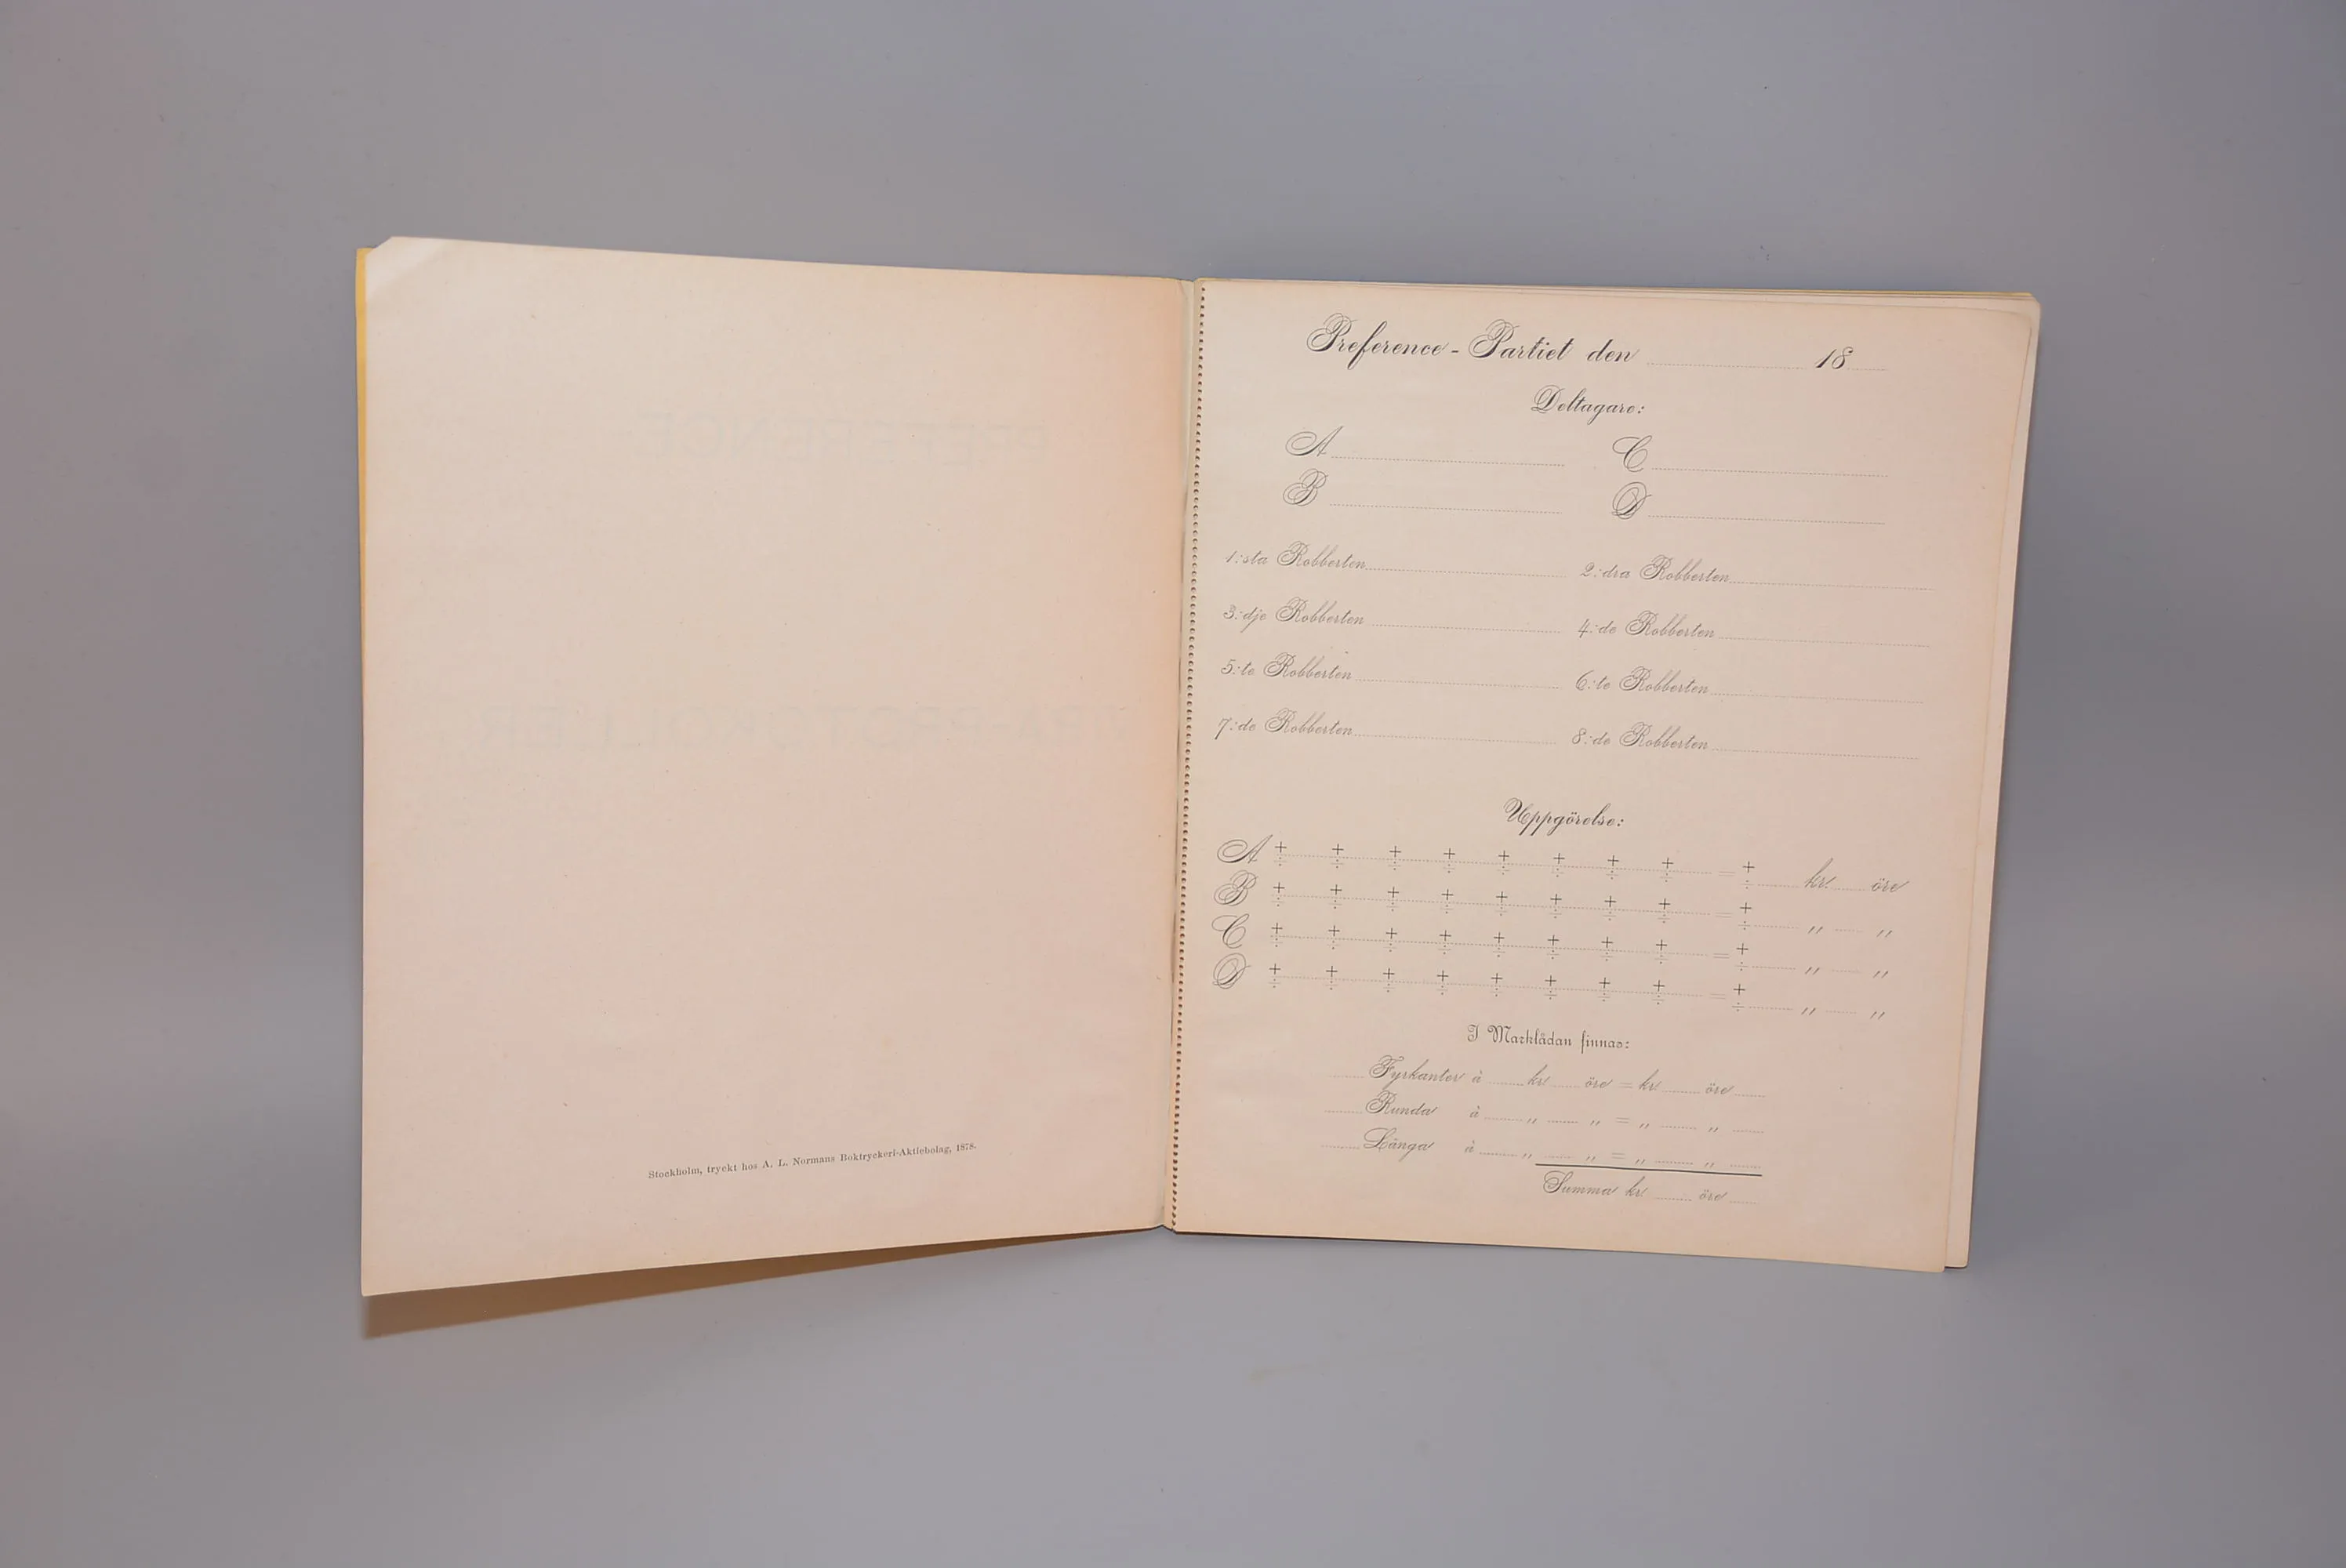 Stockholm, tryckt hos A. L. Normans Boktryckeri-Aktiebolag, 1878.
Preference-Partiet den 18
Deltagare:
A C
B D
1:sta Robberten 2:dra Robberten
3:dje Robberten 4:de Robberten
5:te Robberten 6:te Robberten
7:de Robberten 8:de Robberten
Uppgörelse:
A + + + + + + + + = + kr. öre
÷ ÷ ÷ ÷ ÷ ÷ ÷ ÷ ÷
B + + + + + + + + = + „ „
÷ ÷ ÷ ÷ ÷ ÷ ÷ ÷ ÷
C + + + + + + + + = + „ „
÷ ÷ ÷ ÷ ÷ ÷ ÷ ÷ ÷
D + + + + + + + + = + „ „
÷ ÷ ÷ ÷ ÷ ÷ ÷ ÷ ÷
I Marklådan finnas:
Fyrkanter à kr öre = kr öre
Runda à „ „ = „ „
Långa à „ „ = „ „
Summa kr öre